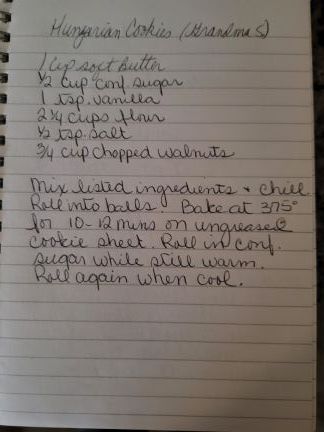 Hungarian Cookies (Grandma S)
1 Cup soft butter
1/2 cup conf. sugar
1 tsp. vanilla
2 1/4 cups flour
1/2 tsp. salt
3/4 cup chopped walnuts
Mix listed ingredients + chill
Roll into balls. Bake at 375°
for 10-12 mins on ungreased
cookie sheet. Roll in conf.
sugar while still warm.
Roll again when cool.